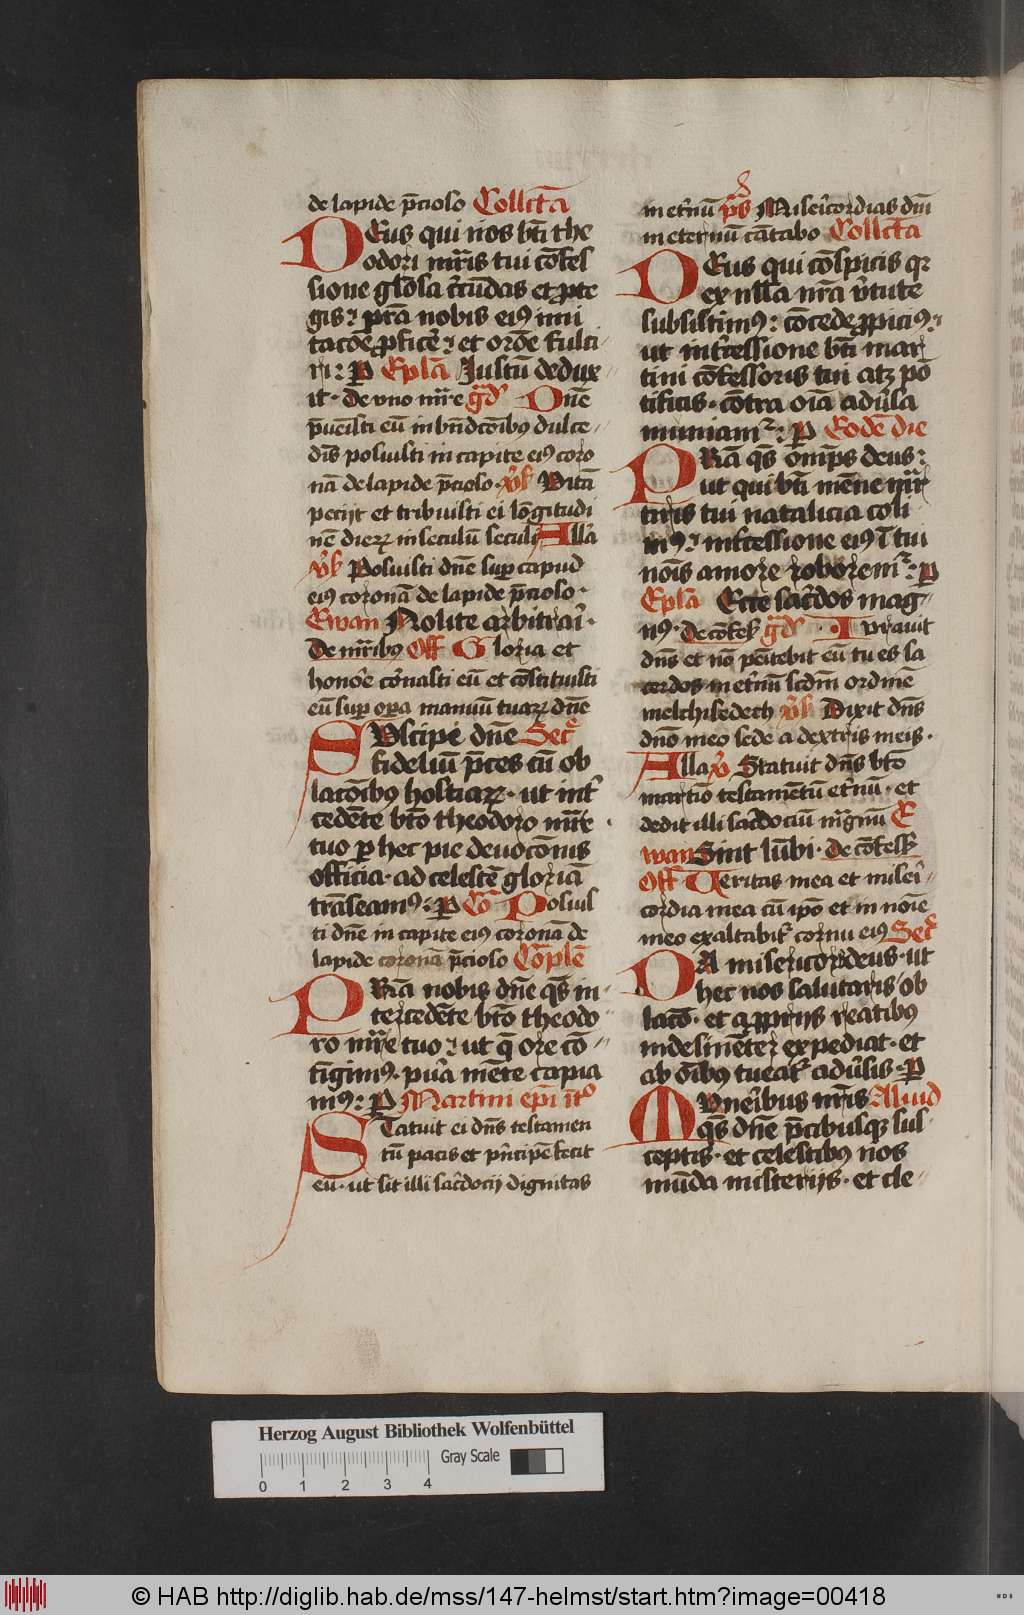 de lapide p̄cioso Collcta̅
DEus qui nos bt̄i the
odori mr̄is tui co̅fes
sione gl̄osa c̄rcu̅das et ꝓte
gis: p̄ra nobis eiꝰ imi
tac̄oe ꝓfice᷑: et or̄oe fulci
ri: P Epl̄a Justu̅ dedux
it· De vno mr̄e gr̄d Dn̄e
p̄uenisti eu̅ in bn̄dcōibꝰ dulce
dīs posuisti in capite eiꝰ coro
na̅ de lapide p̄cioso· v̄s Vita̅
pecijt et tribuisti ei lo̅gitudi
ne̅ dieꝝ in seculu̅ seculi All̄a
v̄s Posuisti dn̄e suꝑ capud
eiꝰ corona̅ de lapide p̄cioso·
Ewan Nolite arbitrari᷑·
De mr̄ibꝰ Off Gloria et
honore᷑ coro̅nasti eu̅ et co̅stituisti
eu̅ suꝑ oꝑa manuu̅ tuaꝝ dn̄e
SUscipe dn̄e Secr̄
fideliu̅ p̄ces cu̅ ob
lac̄oibꝰ hostiaꝝ· ut int᷑
cede̅te bt̄o theodoro mr̄e
tuo ꝑ hec pie deuoc̄ois
officia· ad celeste̅ gloria̅
tra̅seamꝰ: P Co̅ Posuis
ti dn̄e in capite eiꝰ corona̅ de
lapide corona̅ p̄cioso Co̅ple̅
PRīa nobis dn̄e qs̄ in
tercede̅te bt̄o theodo
ro mr̄e tuo: ut q̄ ore co̅
ti̅gimꝰ· pur᷑a me̅te capia
mꝰ: P Martini epī it̄o
STatuit ei dn̄s testamen
tu̅ pacis et pn̄cipe̅ fecit
eu̅· ut sit illi sac᷑docij dignitas
in et᷑nu̅ p̄s Miseri᷑cordias dn̄i
in eternu̅ ca̅tabo Collcta̅
DEus qui co̅spicis qꝛ
ex nlla nr̄a v̄tute
subsistimꝰ: co̅cede ꝓpiciꝰ:
ut int᷑cessione bt̄i mar
tini co̅fessoris tui atqꝫ po̅
tificis· co̅tra oīa adu᷑sa
muniam᷑: P Eode̅ die
PRīa qs̄ om̄ps deus:
ut qui bt̄i me̅ne mr̄
tiris tui natalicia coli
mꝰ: int᷑cessione eiꝰ i̅ tui
nois̄ amore roborem᷑: P
Epl̄a Ecce sac᷑dos mag
nꝰ· De co̅fess gr̄d Iurauit
dn̄s et no̅ peni̅tebit eu̅ tu es sa
cerdos in et᷑nu̅ scd̄m ordine̅
melchisedech v̄s Dixit dn̄s
dn̄o meo sede a dextris meis·
Alla v̄ Statuit dn̄s bt̄o
martio̅ testame̅tu̅ et᷑nu̅· et
dedit illi sac᷑dociu̅ m̄gnu̅ E
wan Sint lu̅bi· De co̅fess
Off Ueritas mea et miseri᷑
cordia mea cu̅ ipo̅ et in noīe
meo exaltabit᷑ cornu eiꝰ Secr̄
DA misericors deus· ut
hec nos salutaris ob
laco̅· et a ꝓprijs reatibꝰ
indesine̅ter expediat· et
ab oi̅bꝰ tueat᷑ adu᷑sis· P
MUneri᷑bus nr̄is Aliud
qs̄ dn̄e p̄cibusqꝫ sus
ceptis· et celestibꝰ nos
mu̅da misterijs· et cle
Herzog August Bibliothek Wolfenbüttel
Gray Scale
0 1 2 3 4
© HAB http://diglib.hab.de/mss/147-helmst/start.htm?image=00418